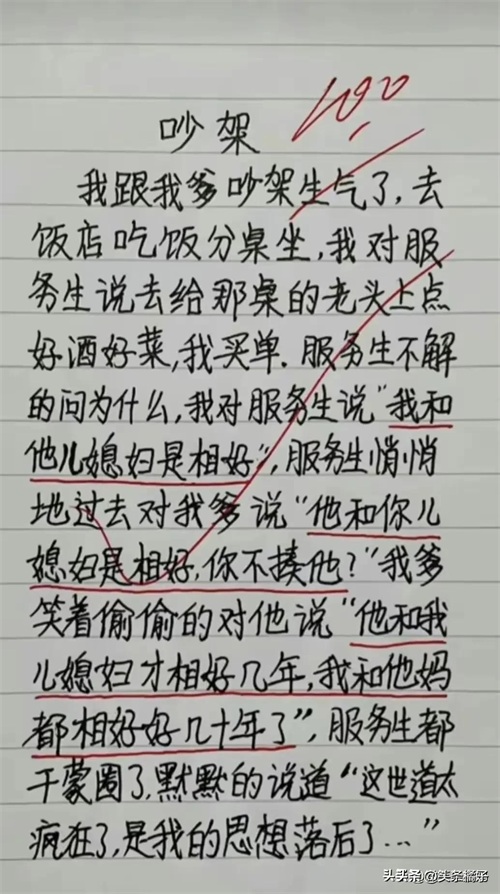 100
吵架
我跟我爹吵架生气了,去
饭店吃饭分桌坐,我对服
务生说去给那桌的老头上点
好酒好菜,我买单.服务生不解
的问为什么,我对服务生说"我和
他儿媳妇是相好",服务生悄悄
地过去对我爹说"他和你儿
媳妇是相好,你不揍他?"我爹
笑着偷偷的对他说"他和我
儿媳妇才相好几年,我和他妈
都相好好几十年了",服务生都
干蒙圈了,默默的说道"这世道太
疯狂了,是我的思想落后了..."
头条@笑条橘子